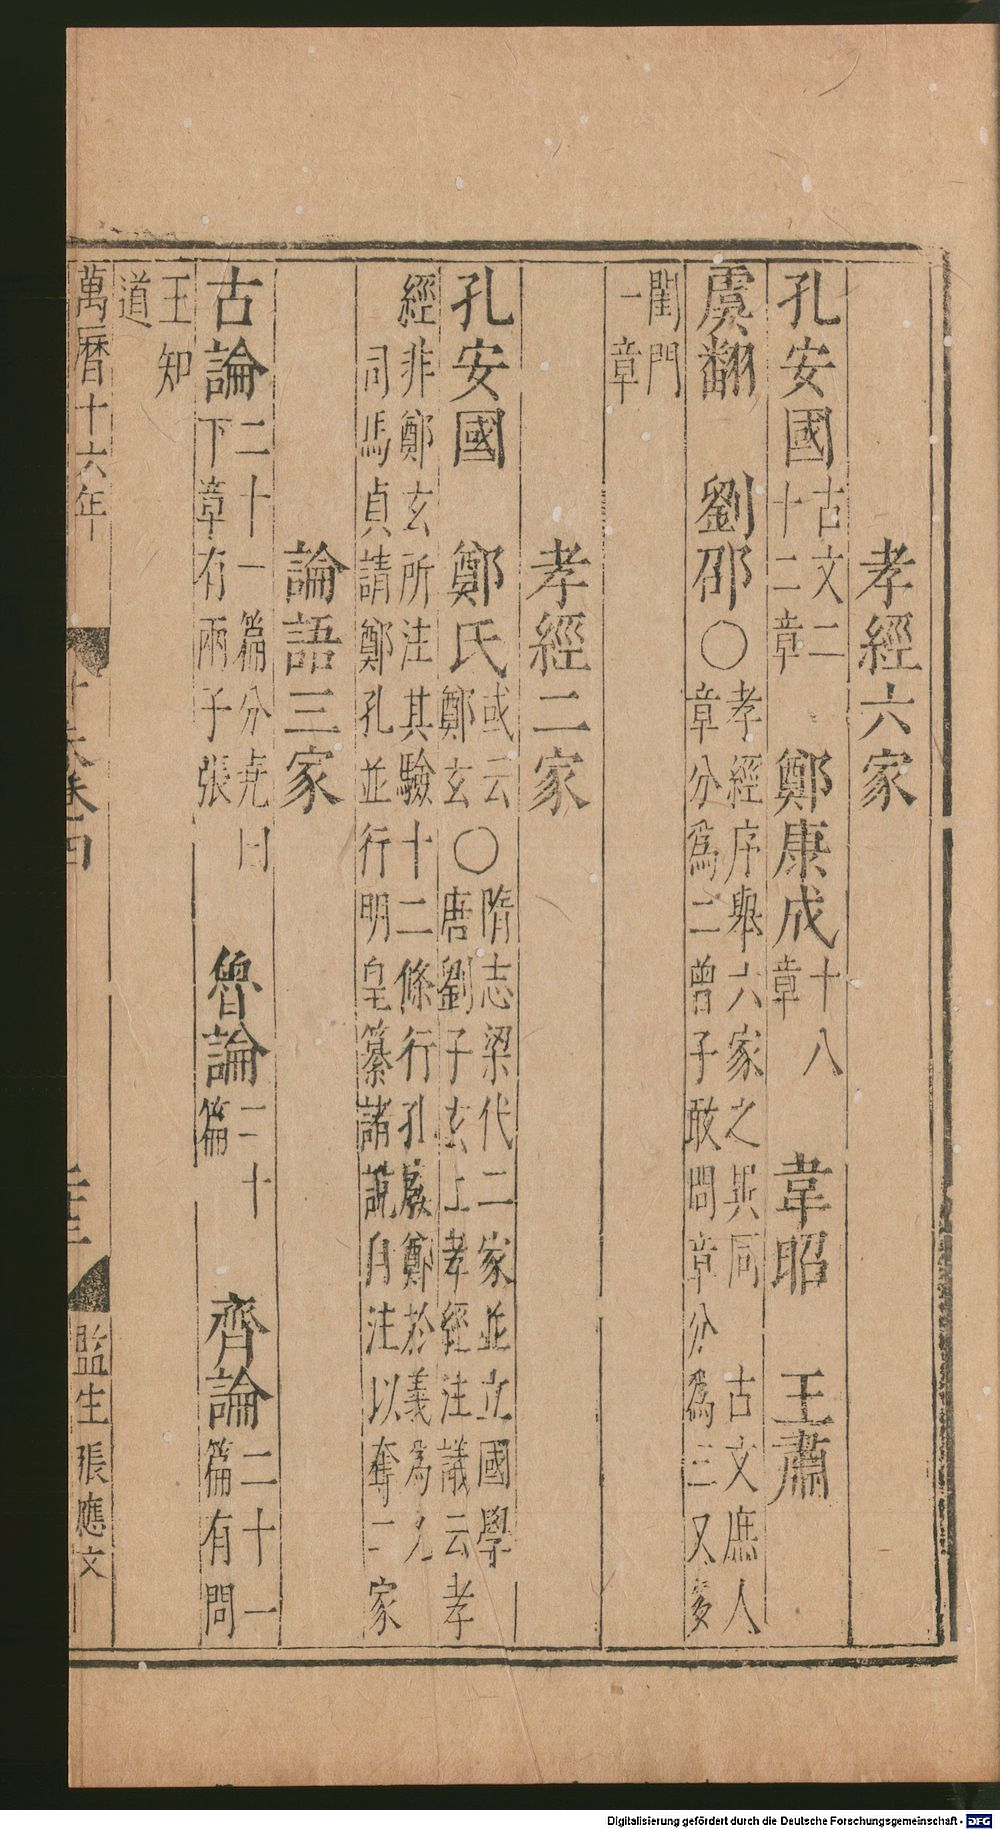 孝經六家
孔安國 古文二十二章 鄭康成 十八章 韋昭 王肅
虞翻 劉邵〇孝經序舉六家之異同 古文庶人章分爲二曾子敢問章分爲三又多
閨門一章
孝經二家
孔安國 鄭氏 或云鄭玄〇隋志梁代二家並立國學唐劉子玄上孝經注議云孝
經非鄭玄所注其驗十二條行孔廢鄭於義為允司馬貞請鄭孔並行明皇纂諸說自注以奪二家
論語三家
古論 二十一篇分堯曰下章有兩子張 魯論 二十篇 齊論 二十一篇有問
王知道
萬曆十六年
卷四
監生張應文
Digitalisierung gefördert durch die Deutsche Forschungsgemeinschaft - DFG